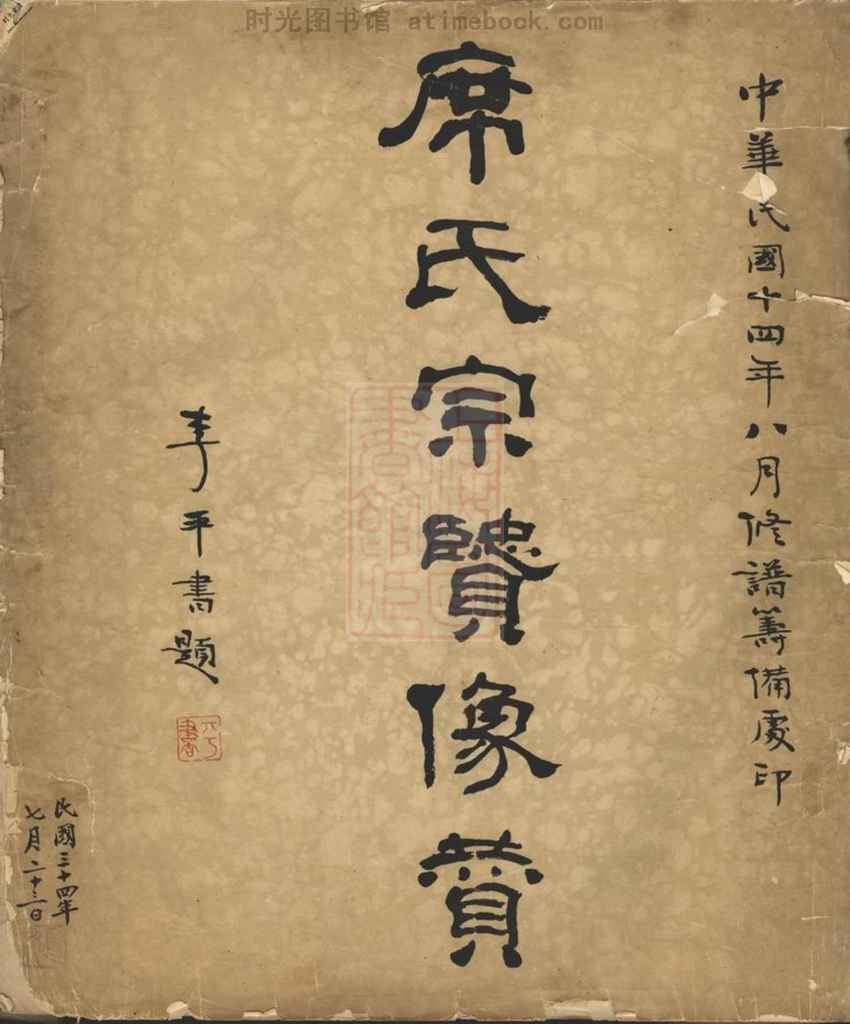 时光图书馆 atimebook.com
中華民國十四年八月修譜籌備處印
席氏宗贒像賛
李平書題
民國三十四年
七月二十三日